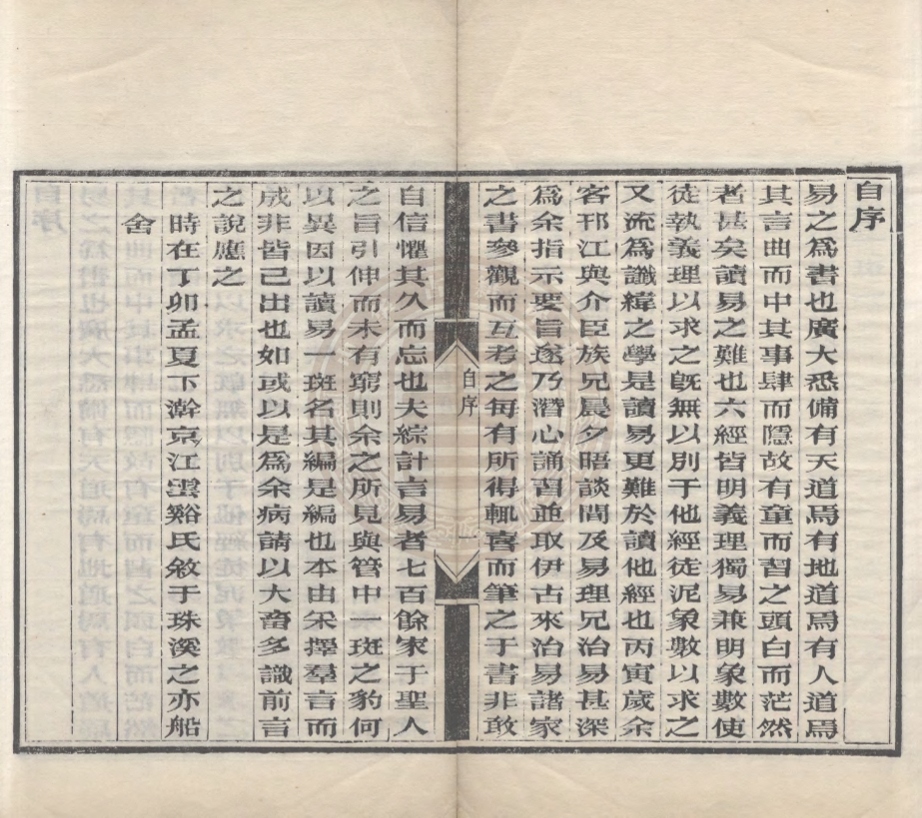 自序
易之爲書也廣大悉備有天道焉有地道焉有人道焉
其言曲而中其事肆而隱故有童而習之頭白而茫然
者甚矣讀易之難也六經皆明義理獨易兼明象數使
徒執義理以求之旣無以別于他經徒泥象數以求之
又流爲讖緯之學是讀易更難於讀他經也丙寅歲余
客邗江與介臣族兄晨夕晤談間及易理兄治易甚深
爲余指示要旨遂乃潛心誦習並取伊古來治易諸家
之書參觀而互考之每有所得輒喜而筆之于書非敢
自序
自信懼其久而忘也夫綜計言易者七百餘家于聖人
之旨引伸而未有窮則余之所見與管中一斑之豹何
以異因以讀易一斑名其編是編也本由采擇羣言而
成非皆己出也如或以是爲余病請以大畜多識前言
之說應之
時在丁卯孟夏下澣京江雲谿氏敘于珠溪之亦船
舍